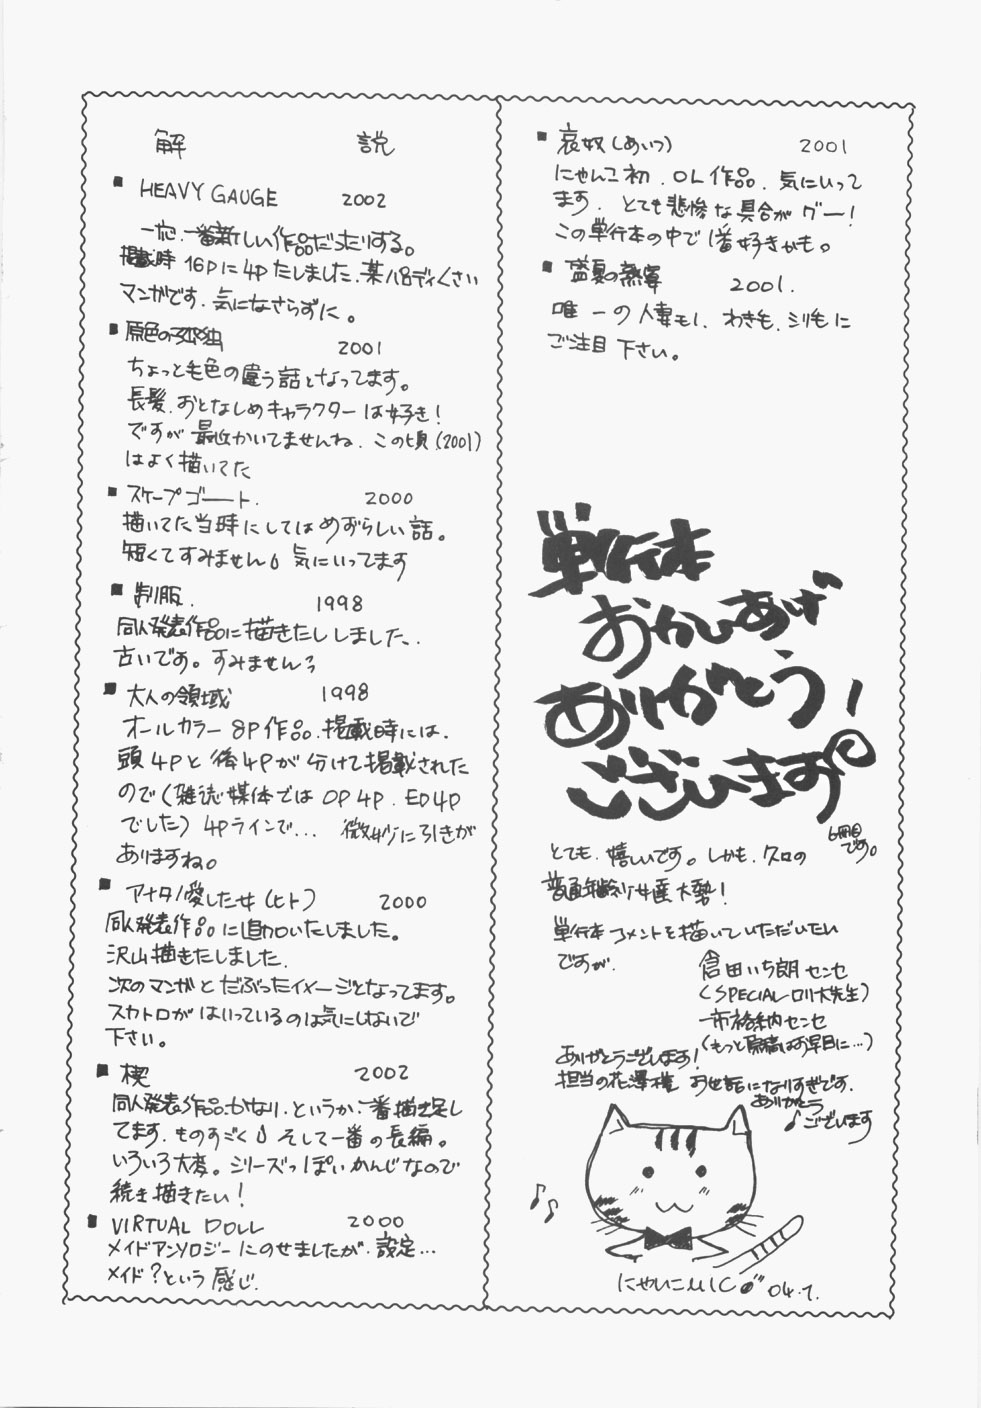 解 説
■ HEAVY GAUGE 2002
一応、一番新しい作品だったりする。
掲載時 16Pに4Pたしました、某パロディくさい
マンガです、気になさらずに。
■ 原色の孤独 2001
ちょっと毛色の違う話となってます。
長髪、おとなしめキャラクターは好き!
ですが最近かいてませんね、この頃(2001)
はよく描いてた
■ スケープゴート. 2000
描いてた当時にしてはめずらしい話。
短くてすみません 気にいってます
■ 制服. 1998
同人発表作品に描きたししました.
古いです。すみませんっ
■ 大人の領域 1998
オールカラー8P作品、掲載時には、
頭4Pと後4Pが分けて掲載された
ので(雑誌媒体ではOP4P、ED4P
でした)4Pラインで… 微妙に引きが
ありますね。
■ アナタノ愛した女(ヒト) 2000
同人発表作品に追加いたしました。
沢山描きたしました.
次のマンガとだぶったイメージとなってます。
スカトロがはいっているのは気にしないで
下さい。
■ 楔 2002
同人発表作品、かなり、というか、一番描き足し
てます、ものすごく そして一番の長編。
いろいろ大変。シリーズっぽいかんじなので
続き描きたい!
■ VIRTUAL DOLL 2000
メイドアンソロジーにのせましたが、設定…
メイド?という感じ.
■ 哀奴(あいつ) 2001
にゃんこ初、OL作品、気にいって
ます、とても悲惨な具合がグー!
この単行本の中で1番好きかも。
■ 盛夏の熱 2001.
唯一の人妻もし、わき毛、シリ毛に
ご注目下さい。
単行本
おかいあげ
ありがとう!
ございます
6冊目
です。
とても、嬉しいです。しかも、クロの
普通年齢り女産大勢!
単行本コメントを描いていただいたい
ですが、
倉田いち朗センセ
(SPECIALロリ大先生)
市格納センセ
(もっと原稿はお早目に…)
ありがとうございます!
担当の花澤様 お世話になりすぎです.
ありがとう
♪ございます
にゃんこMIC 04.7.